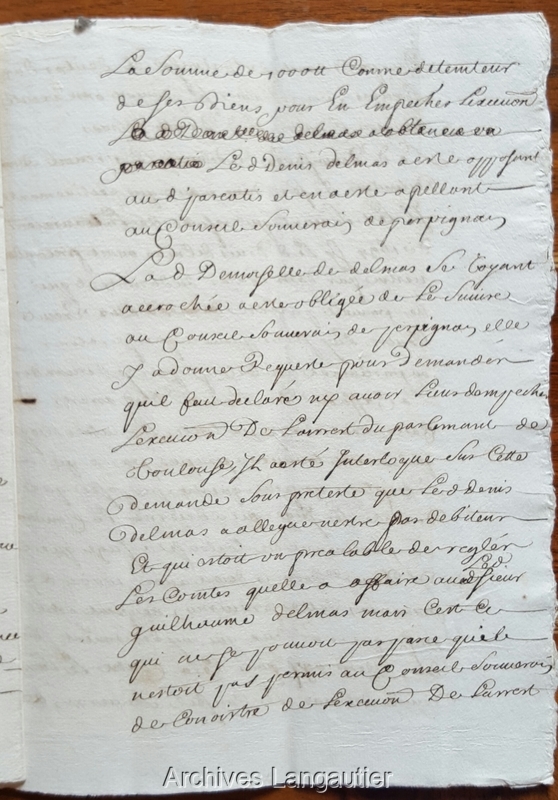 La somme de 1000tt Comme detenteur
de ses Biens, pour En Empecher Lexecuõn
Led Denis delmas a este opposant
au d. pareatis et en a este apellant
au Conseil Souverain de perpignan
La d Demoiselle de delmas se voyant
accrochée a este obligée de Le suivre
au Conseil Souverain de perpignan elle
y a donné Requeste pour Demander
quil fut declaré ny avoir Lieu dempecher
Lexecuõn De Larrest du parlemant de
Toulouse, Il a esté Interloqué sur Cette
demande sous preteste que Led Denis
delmas a allegué nestre pas debiteur
Et quil estoit un prealable de regler
Les Comtes quelle a affaire aud sieur Led
guilhaume delmas mais Cest Ce
qui ne se pouvoit pas parce quil
nestoit pas permis au Conseil Souverain
de Conoistre de Lexecuõn De Larrest
Archives Langautier